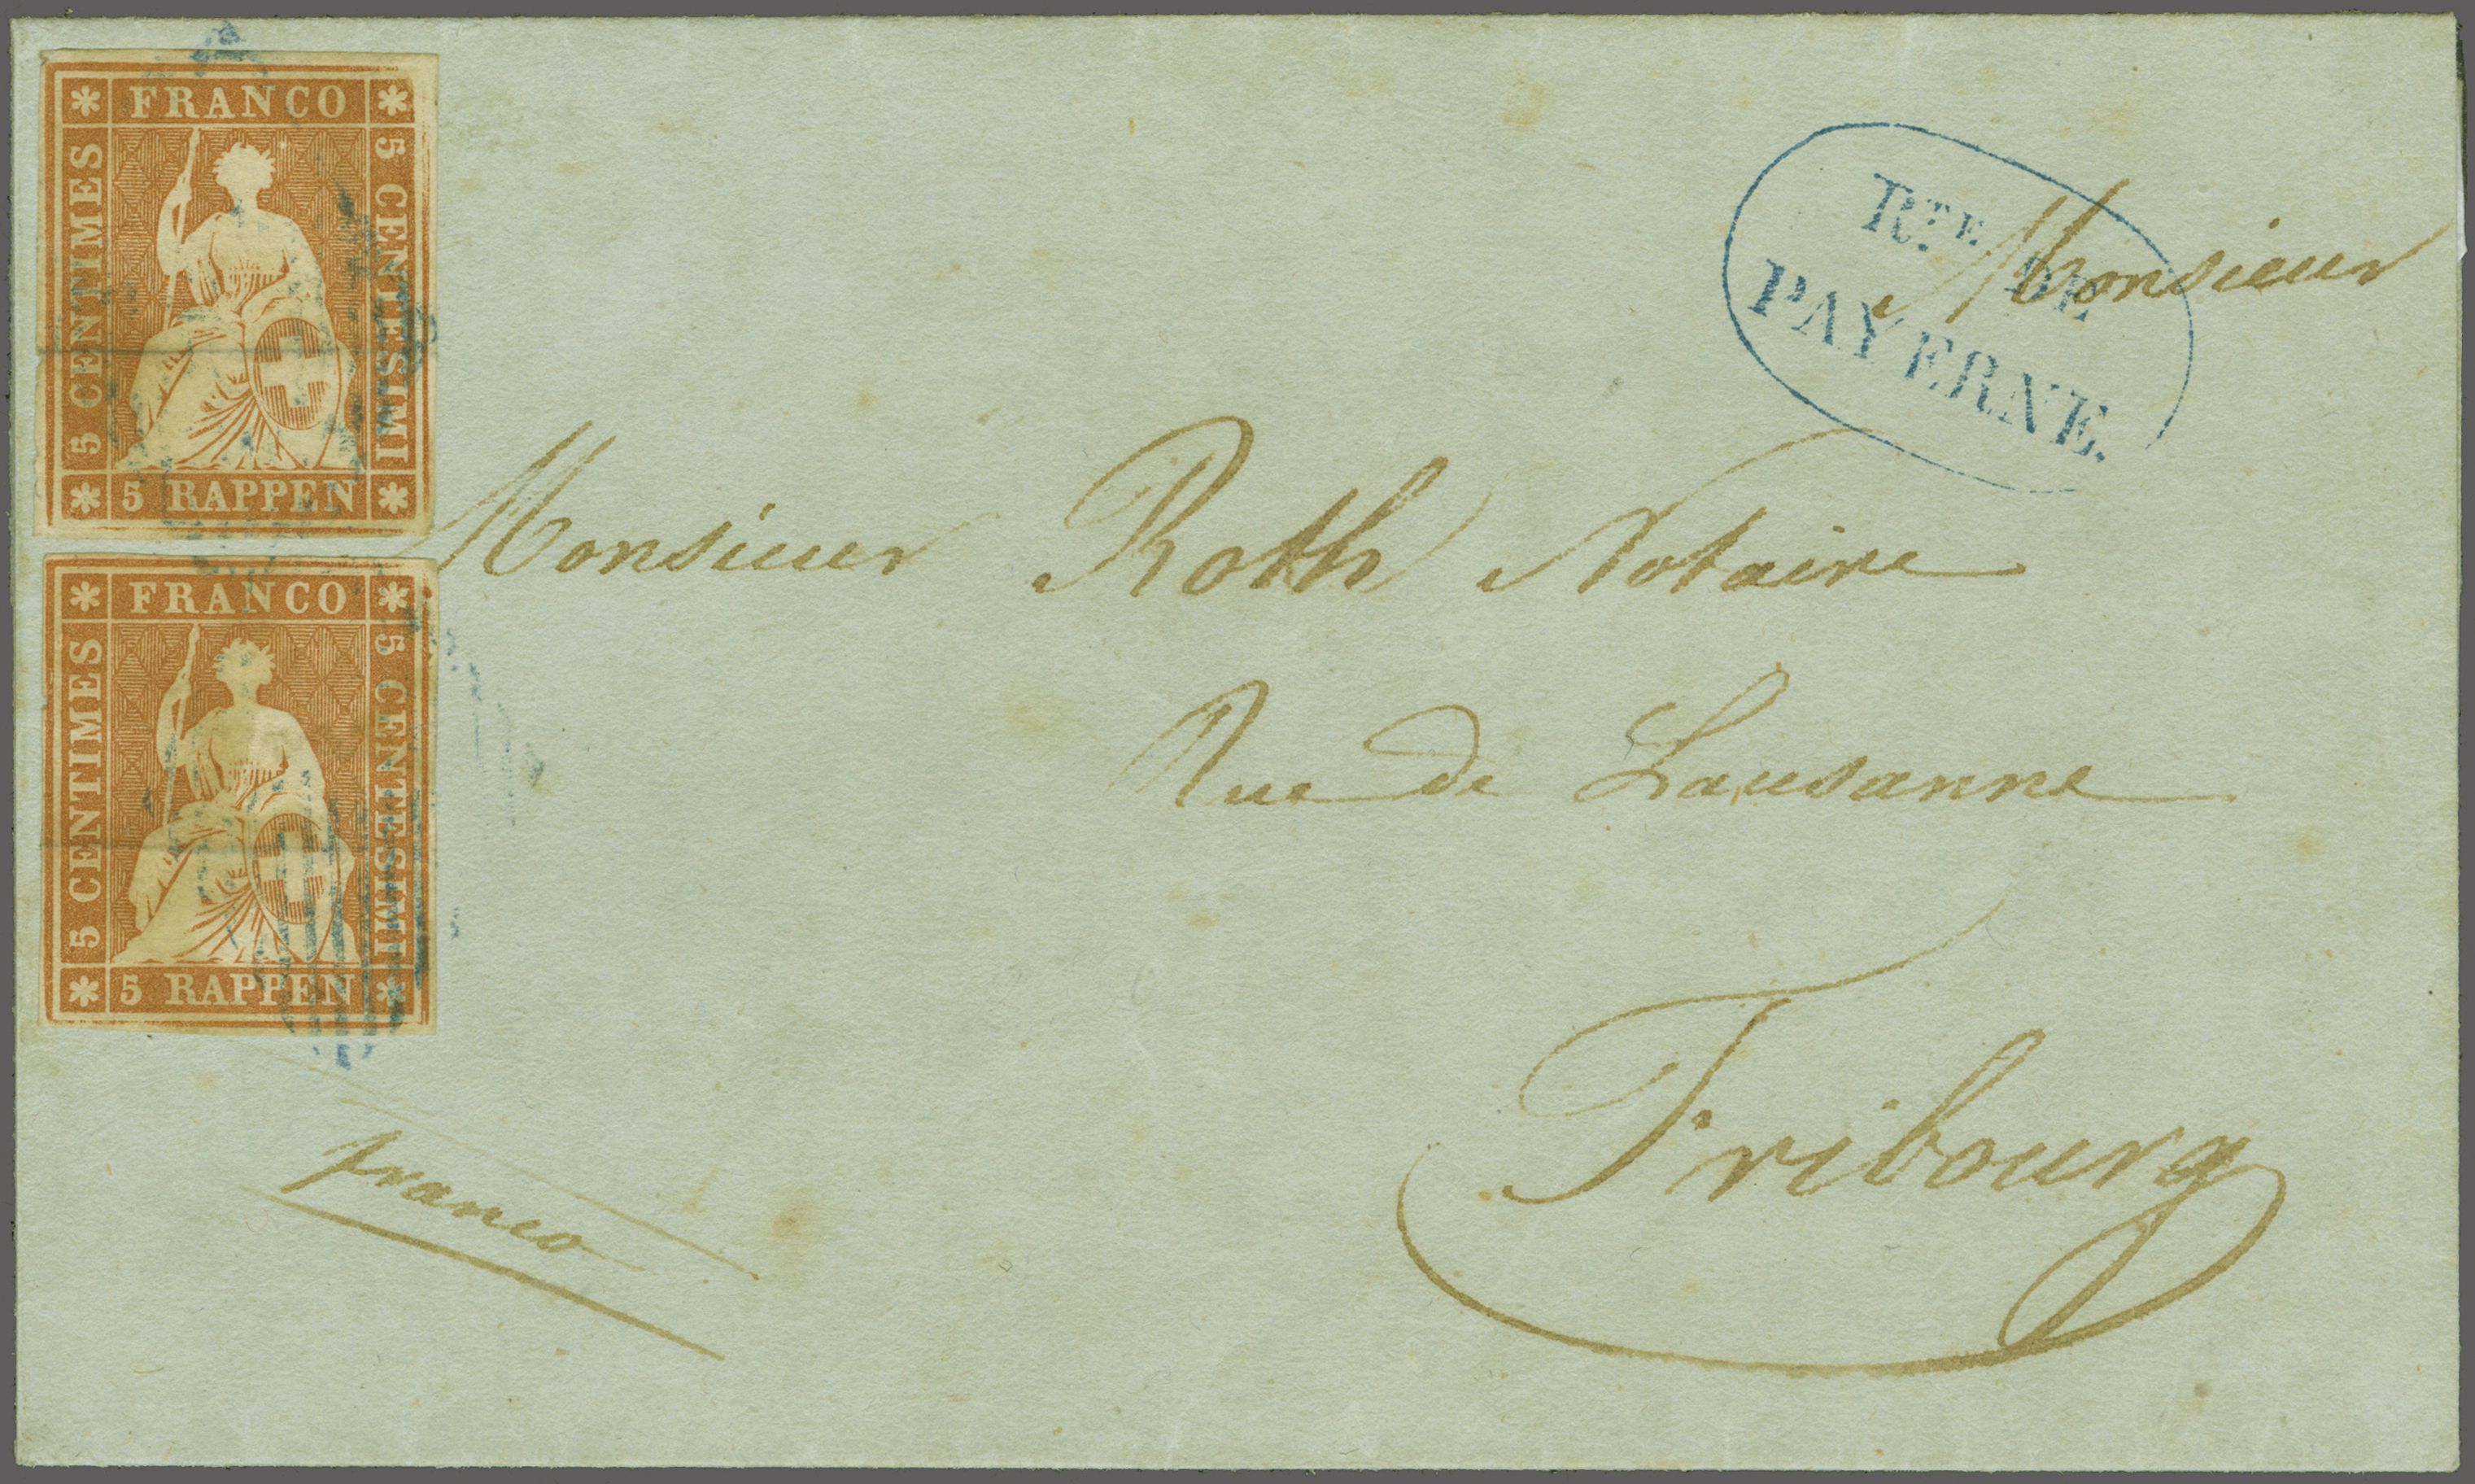 FRANCO
5 CENTIMES
5 CENTESIMI
5 RAPPEN
FRANCO
5 CENTIMES
5 CENTESIMI
5 RAPPEN
RTE DE
PAYERNE.
Monsieur
Monsieur Roth Notaire
Rue de Lausanne
Fribourg
franco